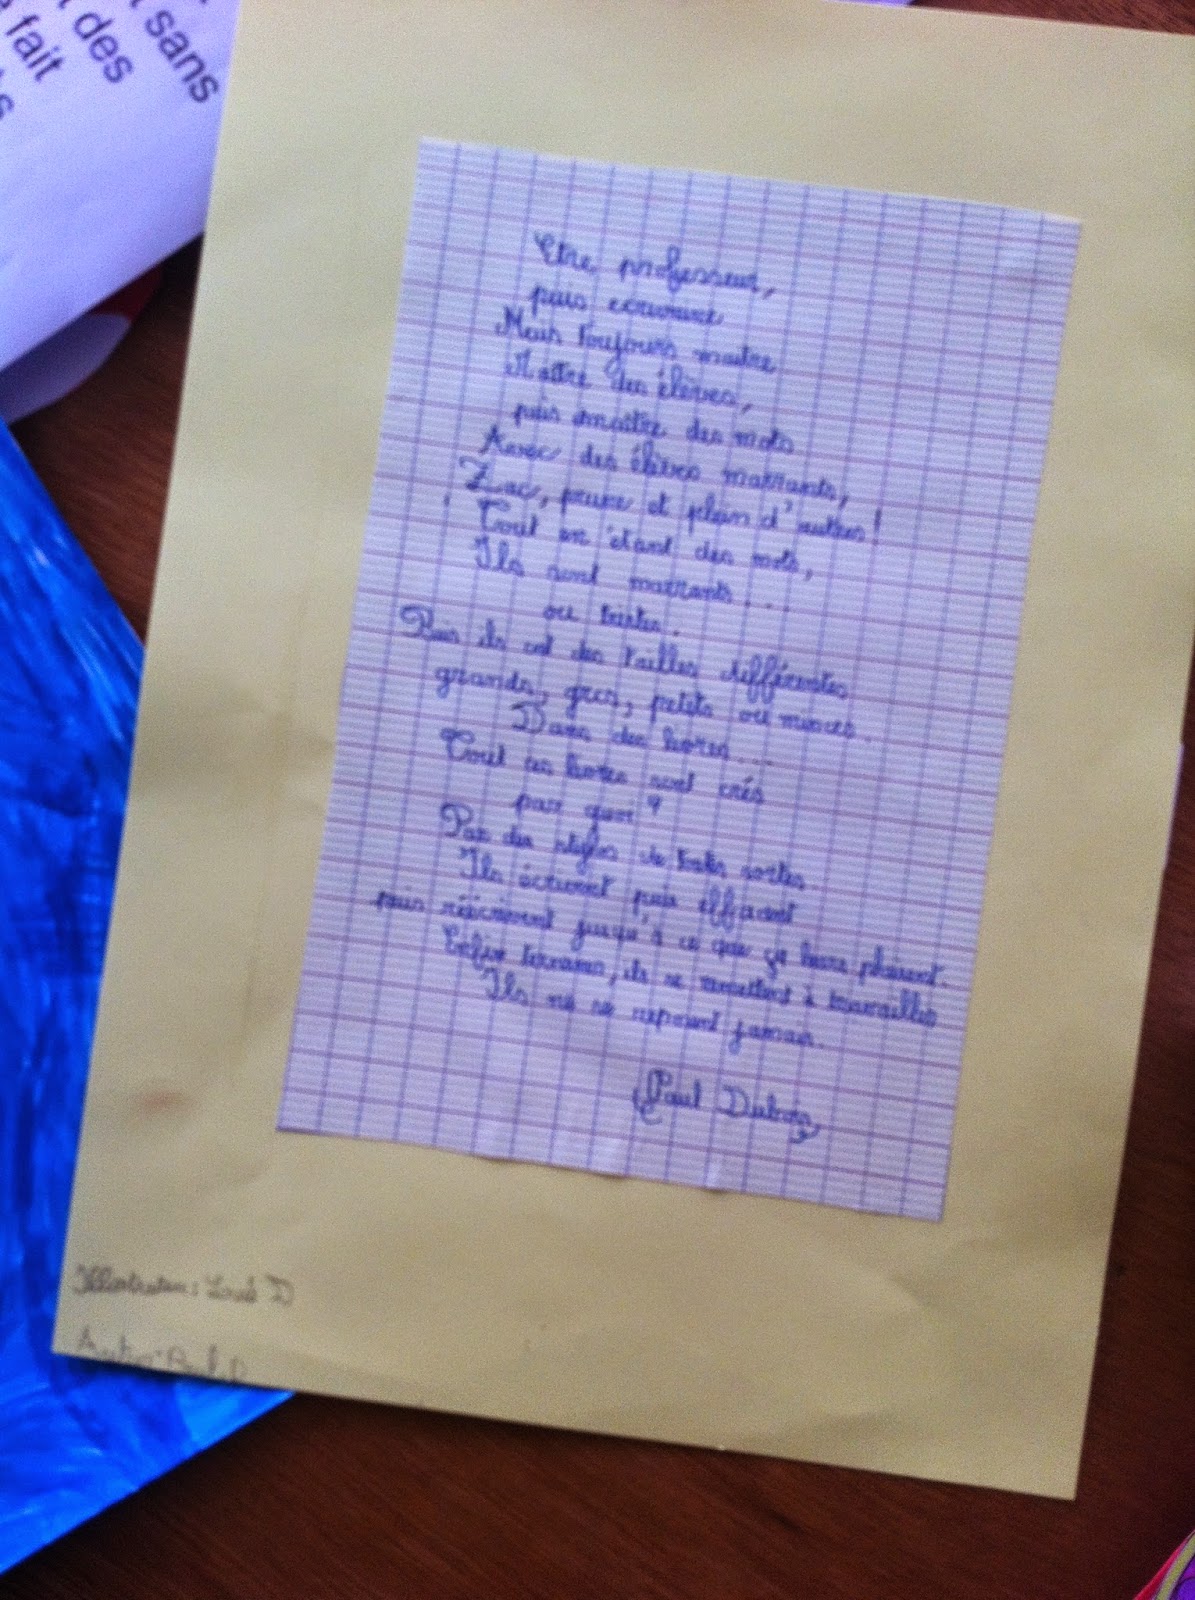 sans
des
fait
Etre professeur,
puis écrivain
Mais toujours maître
Maître des élèves,
puis maître des mots
Avec des élèves marrants,
Zac, prune et plein d'autres !
Tout en étant des mots,
Ils sont marrants...
ou tristes.
Puis ils ont des tailles différentes
grands, gros, petits ou minces.
Dans des livres...
Tout ces livres sont crés
par quoi ?
Par des stylos de toutes sortes
Ils écrivent puis effacent
puis réécrivent jusqu'à ce que ça leurs plaisent.
Enfin terminés, ils se remettent à travailler
Ils ne se reposent jamais.
Paul Dubois
Illustrateur : D
Auteur : Paul D